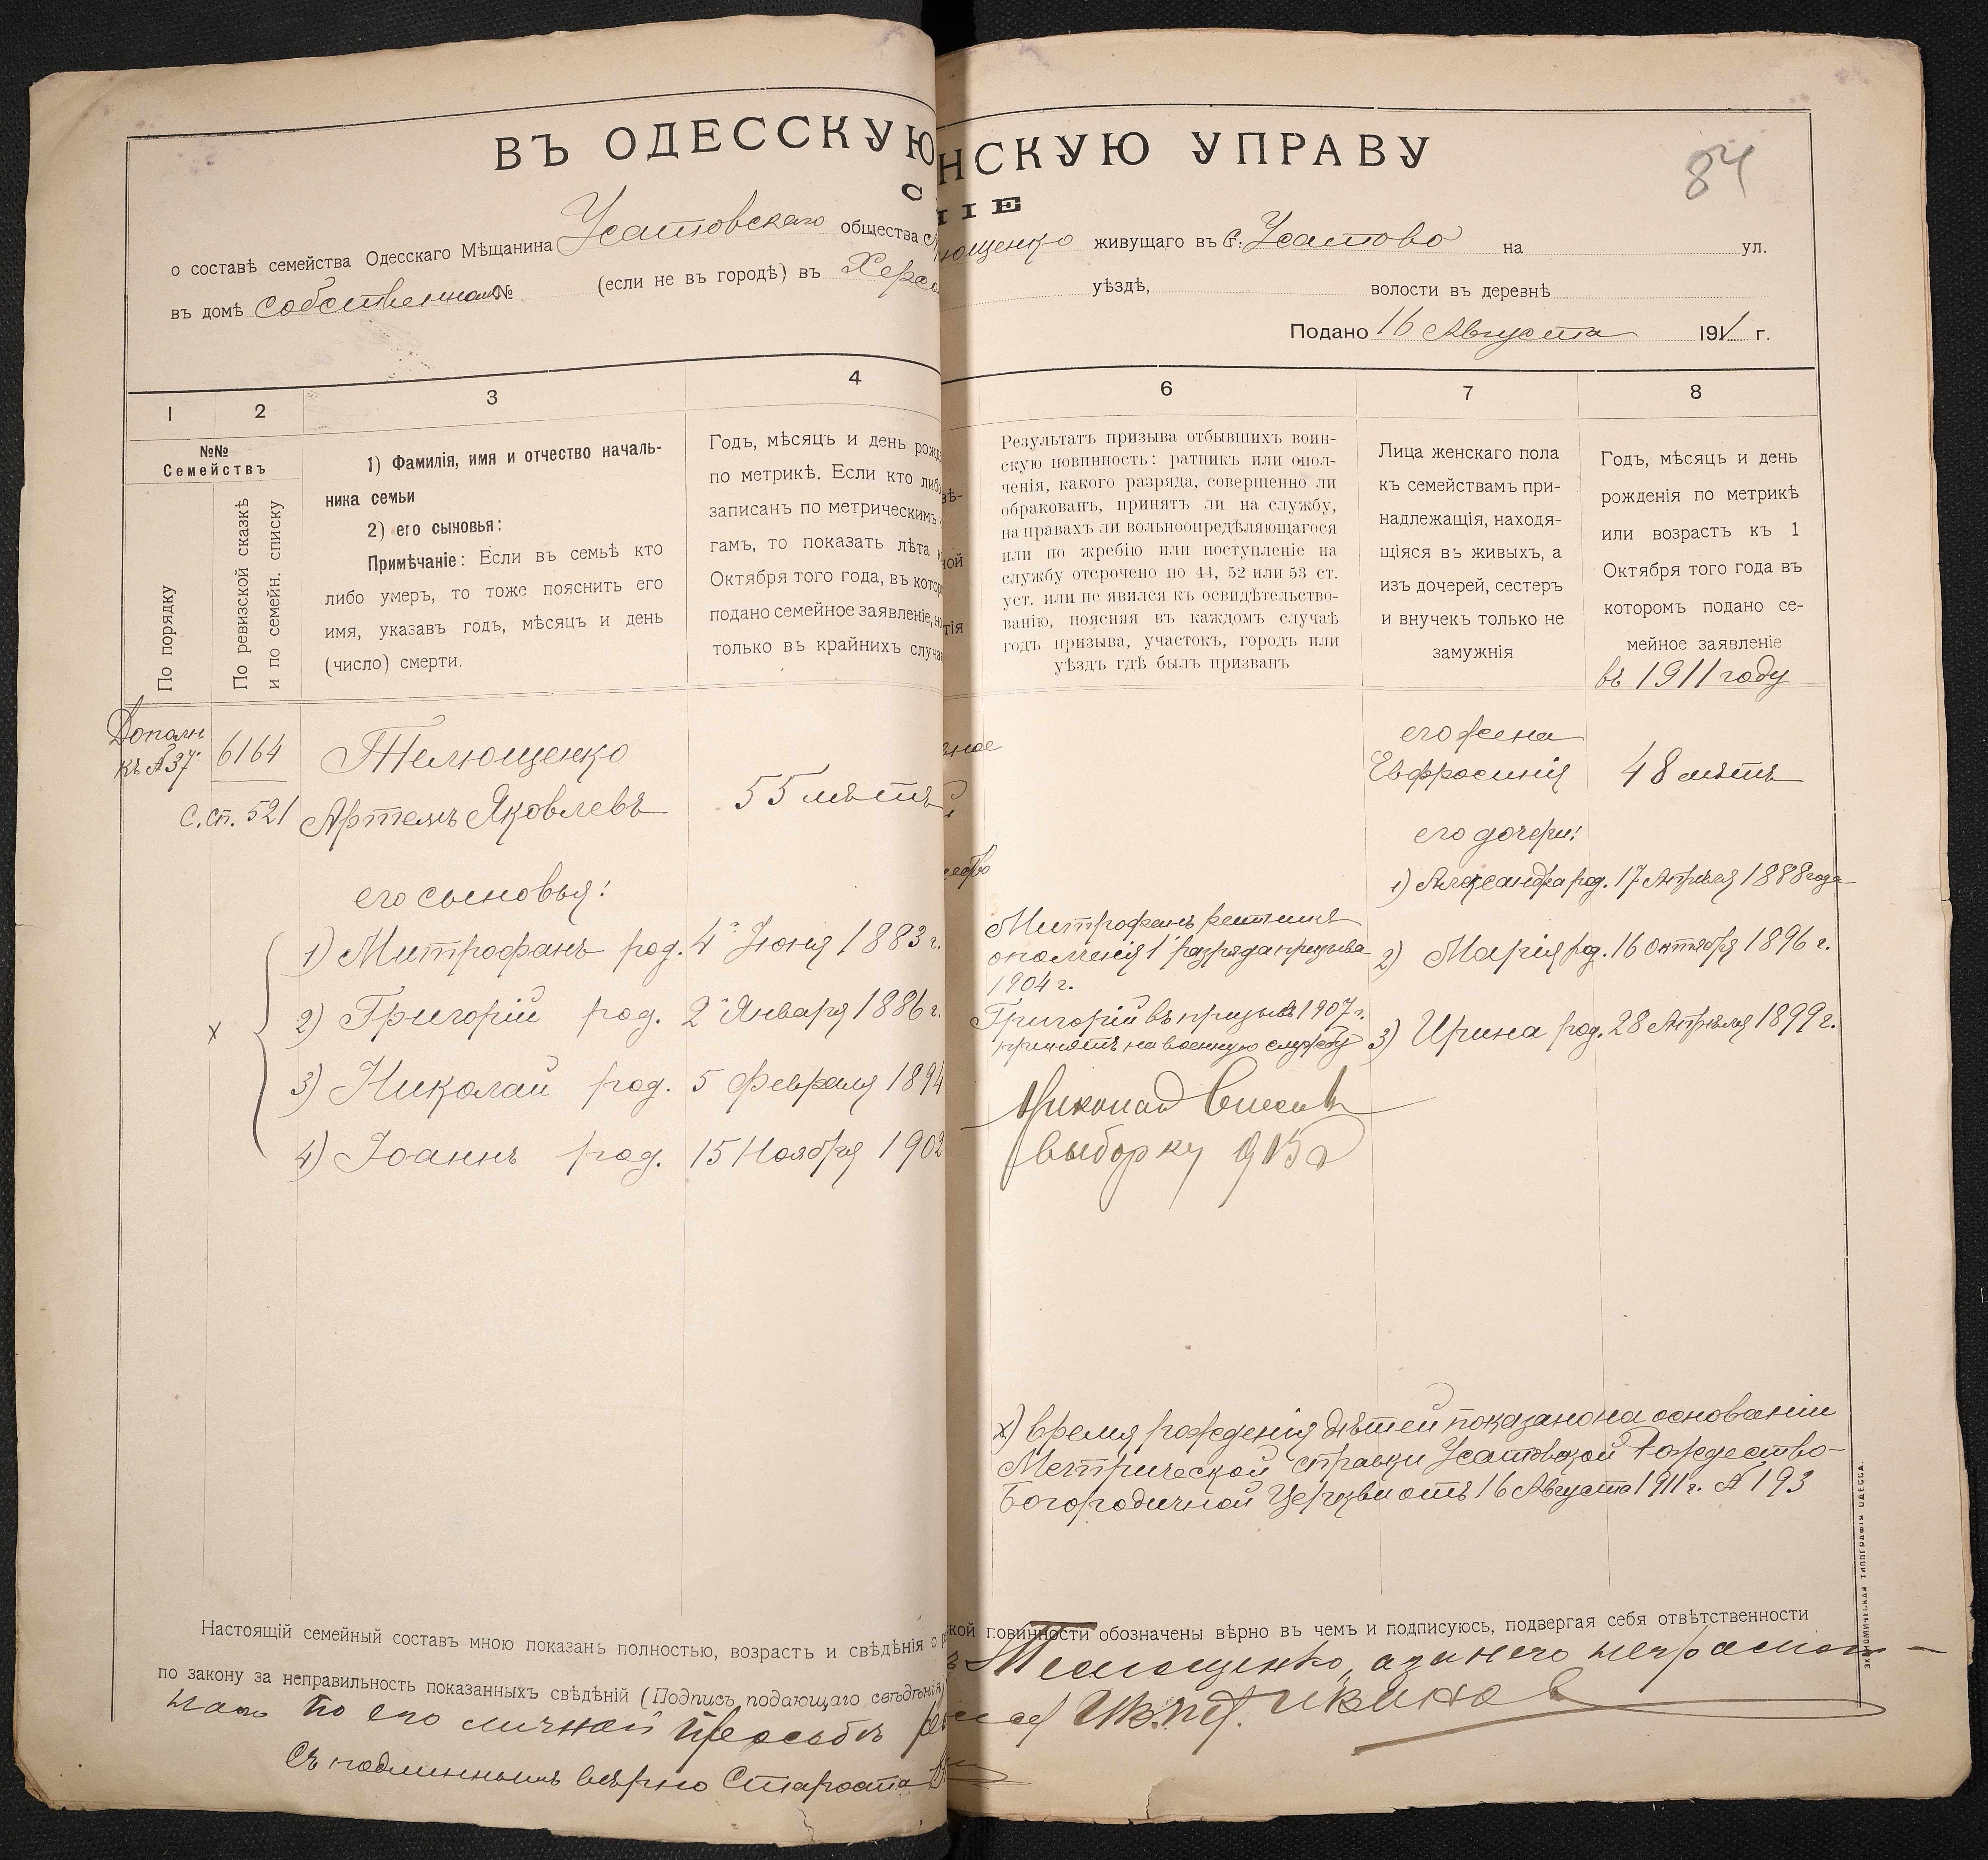 ВЪ ОДЕССКУЮ
НСКУЮ УПРАВУ
84
С
НІЕ
о составѣ семейства Одесскаго Мѣщанина Усатовскаго общества
ющенко живущаго въ с. Усатово на ул.
въ домѣ собственном № (если не въ городѣ) въ Херсо
уѣздѣ, волости въ деревнѣ
Подано 16 Августа 1911 г.
1
2
3
4
6
7
8
№№
Семействъ
По порядку
По ревизской сказкѣ
и по семейн. списку
1) Фамилія, имя и отчество началь-
ника семьи
2) его сыновья:
Примѣчаніе: Если въ семьѣ кто
либо умеръ, то тоже пояснить его
имя, указавъ годъ, мѣсяцъ и день
(число) смерти.
Годъ, мѣсяцъ и день рожд
по метрикѣ. Если кто либо
записанъ по метрическимъ
гамъ, то показать лѣта
Октября того года, въ котор
подано семейное заявленіе, но
только въ крайнихъ случа
вѣ-
ной
тія
Результатъ призыва отбывшихъ воин-
скую повинность: ратникъ или опол-
ченія, какого разряда, совершенно ли
обракованъ, принятъ ли на службу,
на правахъ ли вольноопредѣляющагося
или по жребію или поступленіе на
службу отсрочено по 44, 52 или 53 ст.
уст. или не явился къ освидѣтельство-
ванію, поясняя въ каждомъ случаѣ
годъ призыва, участокъ, городъ или
уѣздъ гдѣ былъ призванъ
Лица женскаго пола
къ семействамъ при-
надлежащія, находя-
щіяся въ живыхъ, а
изъ дочерей, сестеръ
и внучекъ только не
замужнія
Годъ, мѣсяцъ и день
рожденія по метрикѣ
или возрастъ къ 1
Октября того года въ
которомъ подано се-
мейное заявленіе
въ 1911 году
Дополн
къ № 37
6164
с. сп. 521
Телющенко
Артемъ Яковлевъ
55 лѣтъ
его жена
Евфросинія
48 лѣтъ
его сыновья:
его дочери:
1) Митрофанъ род. 4го Іюня 1883 г.
2) Григорій род. 2го Января 1886 г.
3) Николай род. 5 Февраля 1894
4) Іоаннъ род. 15 Ноября 1902
х
Митрофанъ ратникъ
ополченія 1 разряда призыва
1904 г.
Григорій въ призывъ 1907 г.
принятъ на военную службу
Николай внесенъ
выборку 915 г
1) Александра род. 17 Апрѣля 1888 года
2) Марія род. 16 Октября 1896 г.
3) Ирина род. 28 Апрѣля 1899 г.
х) Время рожденія дѣтей показано на основаніи
Метрической справки Усатовской Рождество-
Богородичной Церкви отъ 16 Августа 1911 г. № 193
Настоящій семейный составъ мною показанъ полностью, возрастъ и свѣдѣнія о
ской повинности обозначены вѣрно въ чемъ и подписуюсь, подвергая себя отвѣтственности
по закону за неправильность показанныхъ свѣдѣній (Подпись подающаго свѣдѣнія)
Телющенко, а за него неграмот-
наго по его личной просьбѣ
Иванов
Съ подлиннымъ вѣрно Староста
ЭКОНОМИЧЕСКАЯ ТИПОГРАФІЯ ОДЕССА.